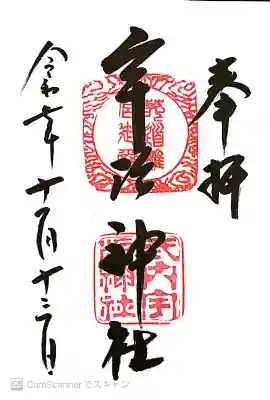 奉拝
宇治神社
式内宇
治神社
令和七年十月十三日
CamScanner でスキャン